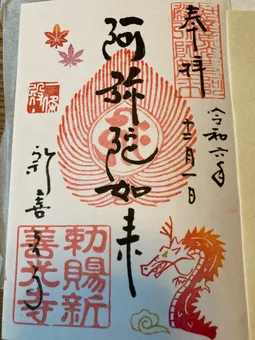 奉拝
令和六年
十二月一日
阿弥陀如来
新善光寺
勅賜新
善光寺